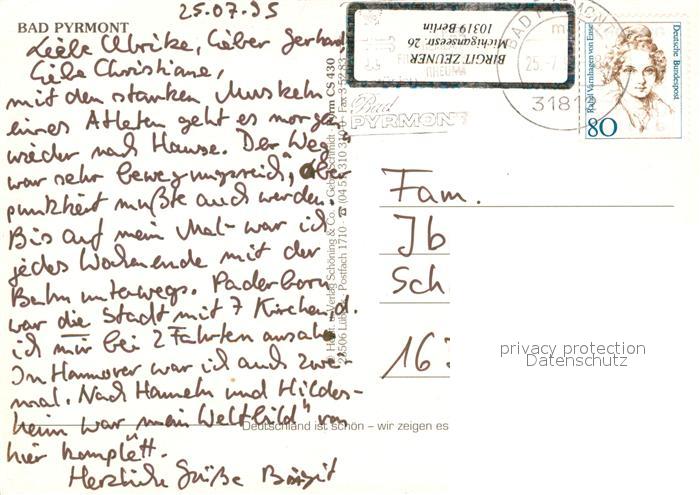 25.07.95
BAD PYRMONT
Liebe Ulrike, lieber Gerhard
Liebe Christiane,
mit den starken Muskeln
eines Athleten geht es morgen
wieder nach Hause. Der Weg
war sehr bewegungsreich", aber
punktiert mußte auch werden.
Bis auf mein Mal war ich
jedes Wochenende mit der
Bahn unterwegs. Paderborn
war die Stadt mit 7 Kirchen, d.
ich mir bei 2 Fahrten ansah
In Hannover war ich auch zwei
mal. Nach Hameln und Hildes-
heim war mein Weltbild" von
hier komplett.
Herzliche Grüße Birgit
BIRGIT ZEUNER
Michiganseestr. 26
10319 Berlin
RHEUMA
Bad
PYRMONT
BAD PYRMONT
25.-7.
31812
Rahel Varnhagen von Ense
Deutsche Bundespost
80
Fam.
Jb
Sch
16
privacy protection
Datenschutz
© Herst. u. Verlag Schöning & Co. + Gebr. Schmidt · Form CS 430
23506 Lübeck · Postfach 1710 · ☎ (04 51) 310 310 · Fax 3 52 83
Deutschland ist schön – wir zeigen es